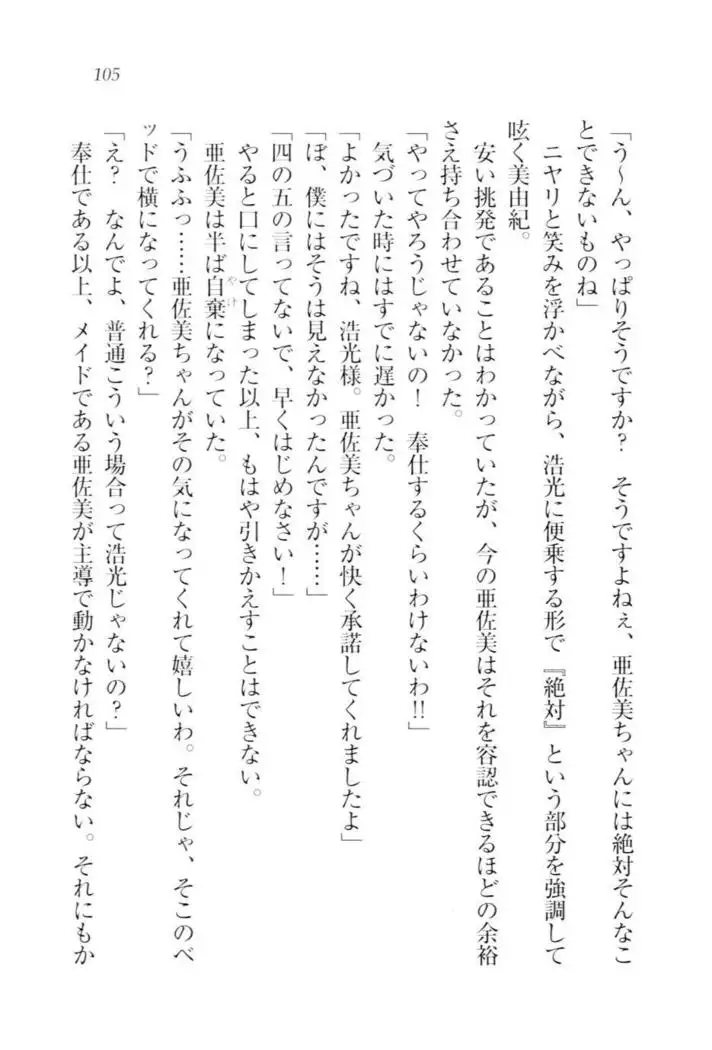 105
「う～ん、やっぱりそうですか？　そうですよねぇ、亜佐美ちゃんには絶対そんなこ
とできないものね」
ニヤリと笑みを浮かべながら、浩光に便乗する形で『絶対』という部分を強調して
呟く美由紀。
安い挑発であることはわかっていたが、今の亜佐美はそれを容認できるほどの余裕
さえ持ち合わせていなかった。
「やってやろうじゃないの！　奉仕するくらいわけないわ!!」
気づいた時にはすでに遅かった。
「よかったですね、浩光様。亜佐美ちゃんが快く承諾してくれましたよ」
「ぼ、僕にはそうは見えなかったんですが……」
「四の五の言ってないで、早くはじめなさい！」
やると口にしてしまった以上、もはや引きかえすことはできない。
亜佐美は半ば自棄になっていた。
やけ
「うふふっ……亜佐美ちゃんがその気になってくれて嬉しいわ。それじゃ、そこのベ
ッドで横になってくれる？」
「え？　なんでよ、普通こういう場合って浩光じゃないの？」
奉仕である以上、メイドである亜佐美が主導で動かなければならない。それにもか